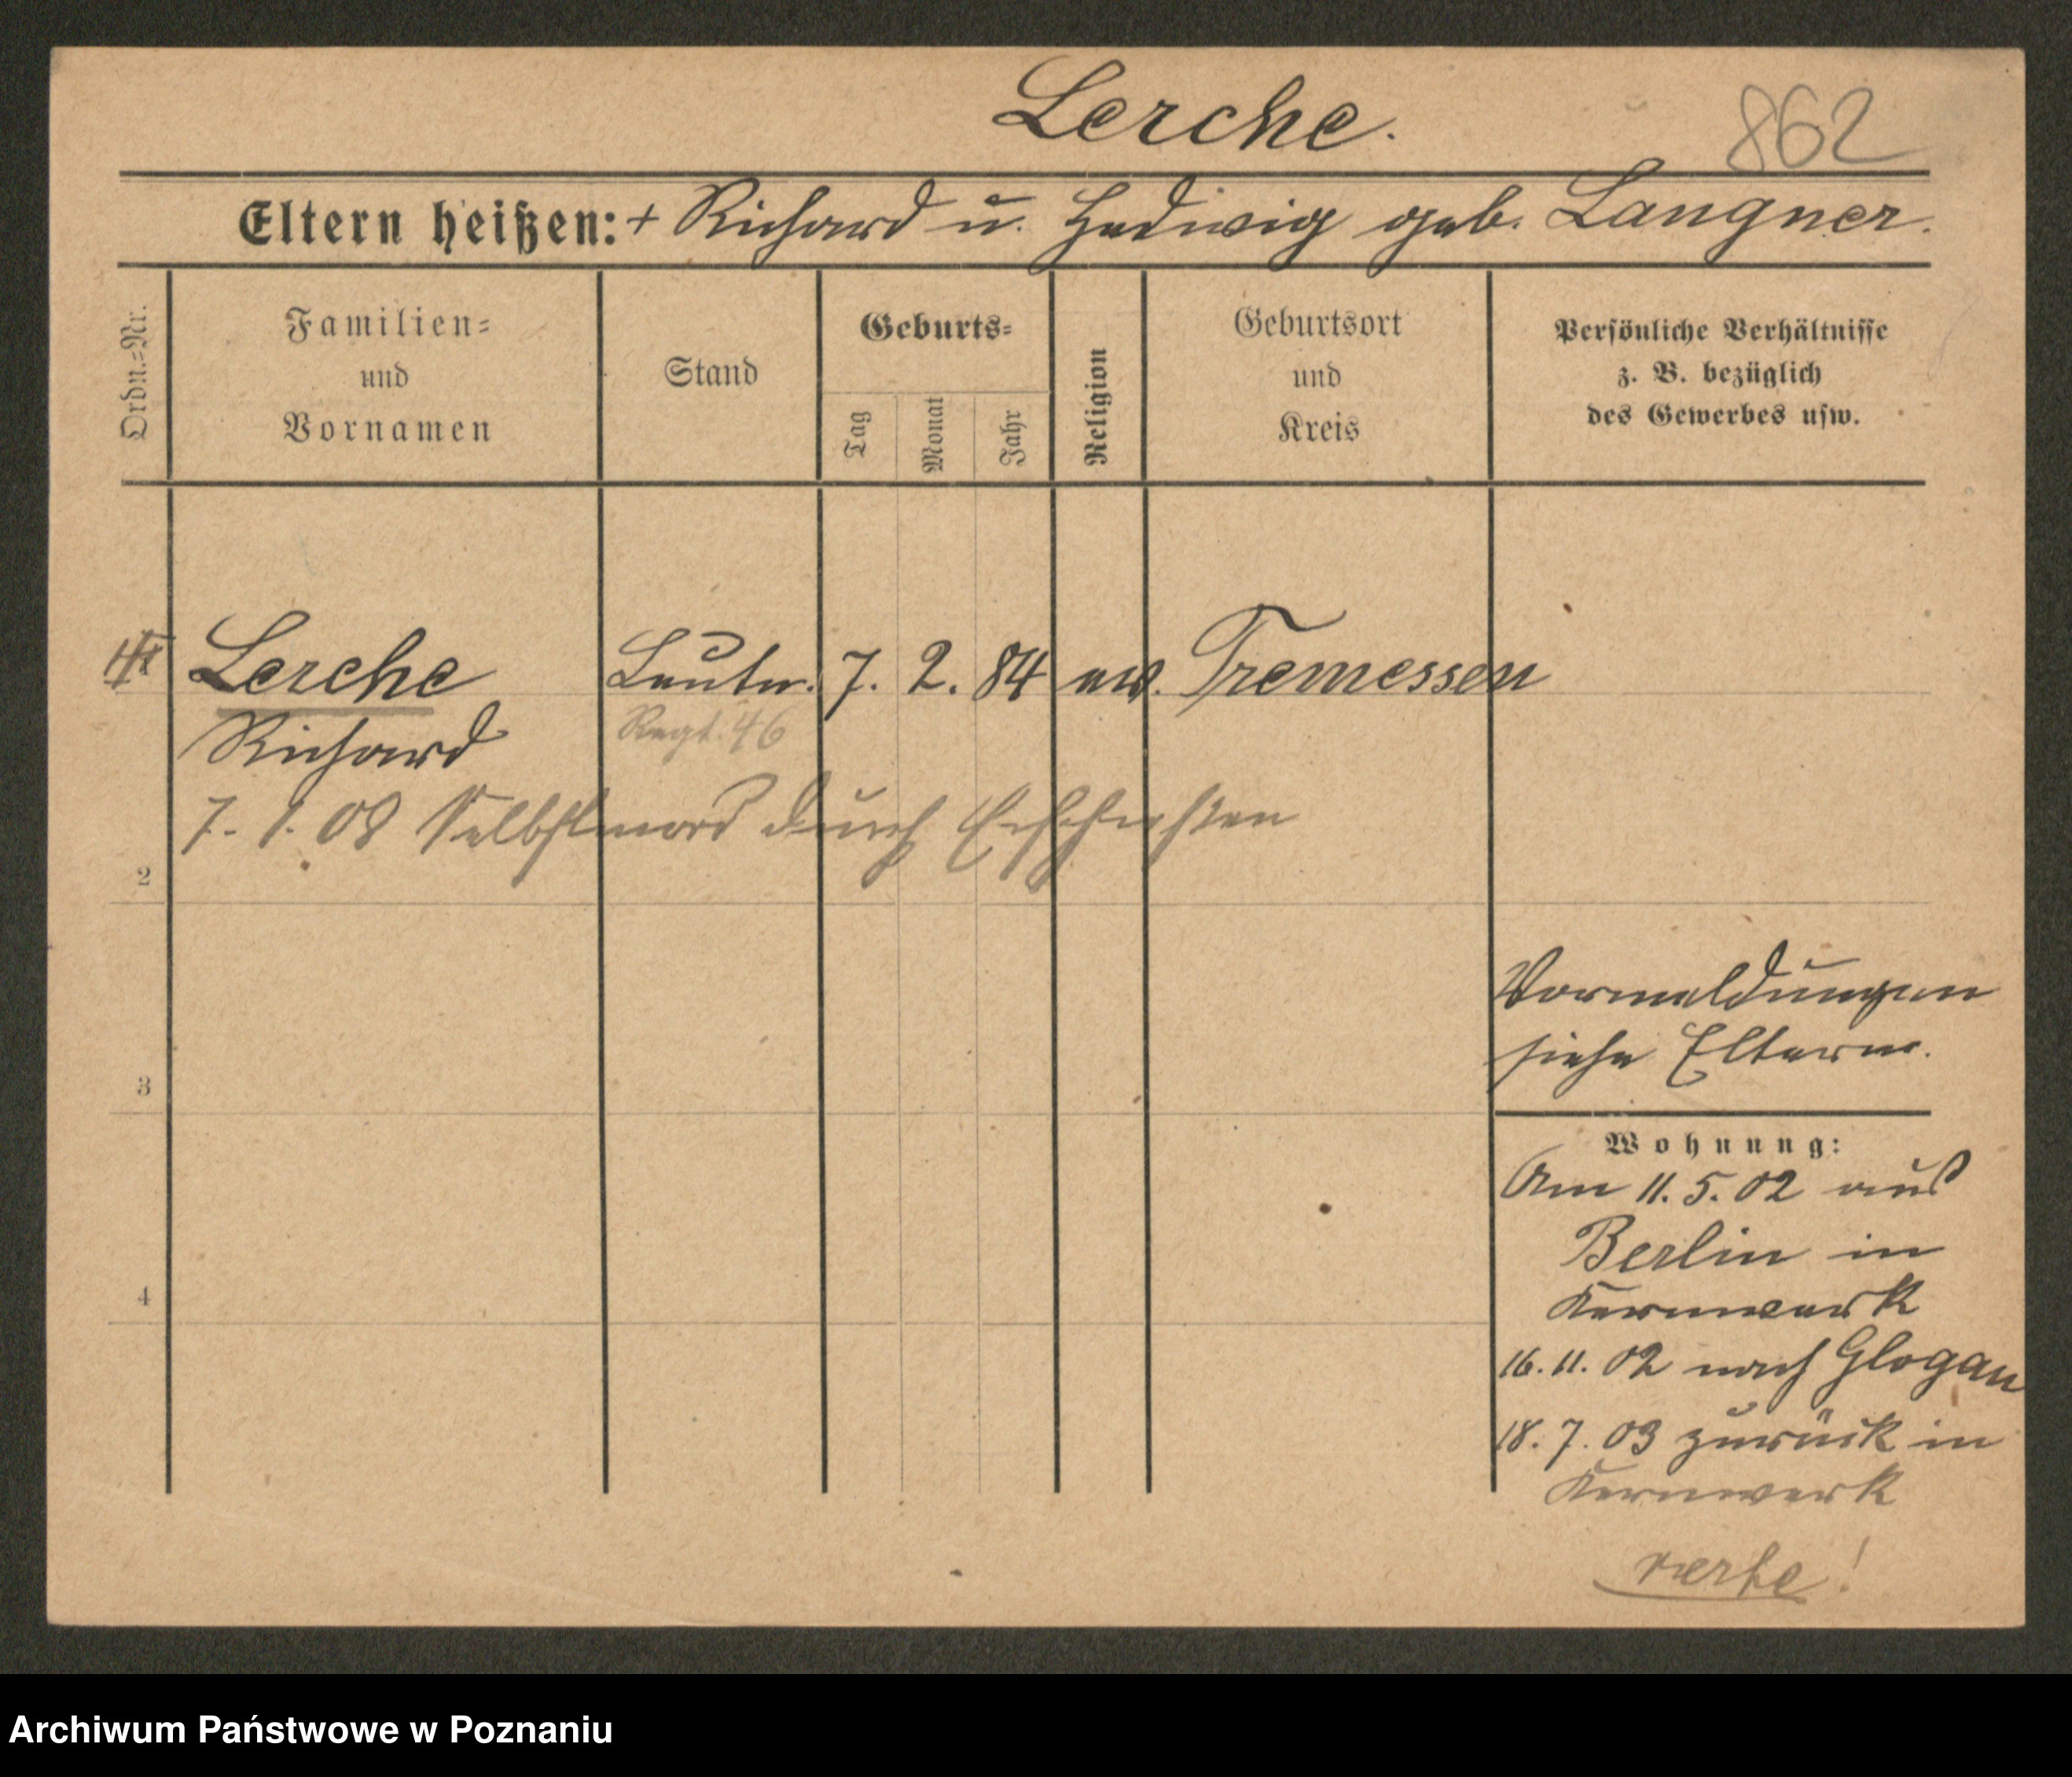 Lerche.
862
Eltern heißen: + Richard u. Hedwig geb. Langner.
Ordn.=Nr.
Familien=
und
Vornamen
Stand
Geburts=
Tag
Monat
Jahr
Religion
Geburtsort
und
Kreis
Persönliche Verhältnisse
z. B. bezüglich
des Gewerbes usw.
Lerche Leutn. 7. 2. 84 ev. Tremessen
Richard Regt. 46
7. 1. 08 Selbstmord durch Erschießen
2
Vormeldungen
siehe Eltern.
3
Wohnung:
Am 11. 5. 02 aus
Berlin in
Kernwerk
4
16. 11. 02 nach Glogau
18. 7. 03 zurück in
Kernwerk
verte!
Archiwum Państwowe w Poznaniu